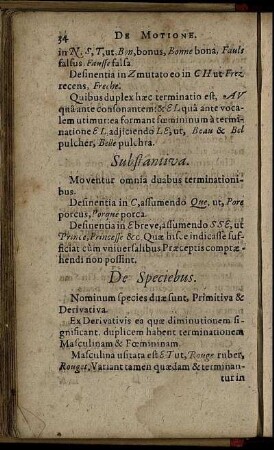 34 DE MOTIONE.
in N, S, T, ut Bon, bonus, Bonne bona, Fauls
falsus Faulse falsa.
Desinentia in Z mutato eo in CH ut Frez
recens, Freche.
Quibus duplex hæc terminatio est, AV
quâ ante consonantem: & EL quâ ante voca-
lem utimur ea formant fœmininum à termi-
natione EL adjiciendo LE, ut, Beau & Bel
pulcher, Belle pulchra.
Substantiva.
Moventur omnia duabus terminationi-
bus.
Desinentia in C, assumendo Que, ut, Porc
porcus, Porque porca.
Desinentia in E breve, assumendo SSE, ut
Prince, Princesse &c. Quæ hisce indicasse suf-
ficiat cùm vniversalibus Præceptis compræ-
hendi non possint.
De Speciebus.
Nominum species duæ sunt, Primitiva &
Derivativa.
Ex Derivativis ea quæ diminutionem si-
gnificant duplicem habent terminationem
Masculinam & Fœmininam.
Masculina usitata est ET ut, Rouge ruber,
Rouget, Variant tamen quædam & terminan-
tur in